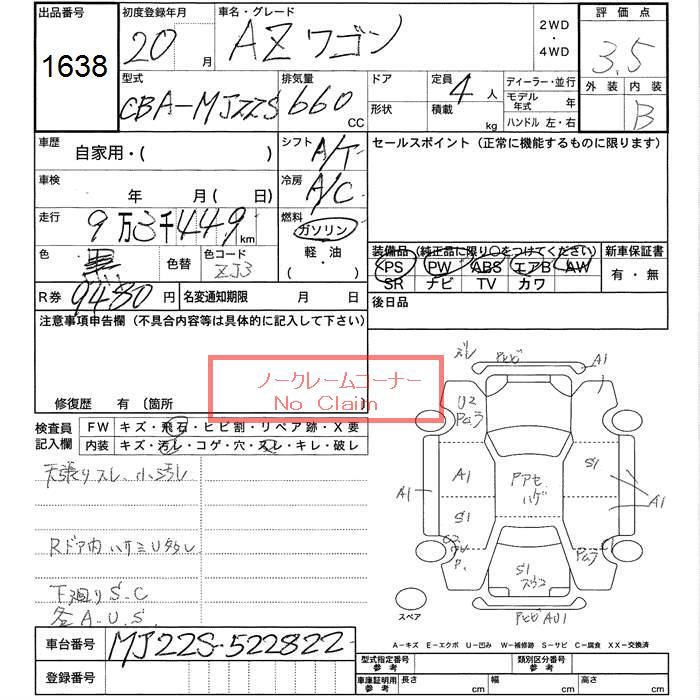 出品番号 初度登録年月 車名・グレード 2WD・4WD 評価点
1638 20 月 AZワゴン 3.5
型式 排気量 ドア 定員 ディーラー・並行 外装 内装
CBA-MJ22S 660 CC 形状 4 人 モデル年式 年 B
積載 kg ハンドル 左・右
車歴 自家用・( ) シフト A/T セールスポイント (正常に機能するものに限ります)
車検 年 月 ( 日) 冷房 A/C
走行 9万3千449 km 燃料 ガソリン
色 黒 色替 色コード ZJ3 軽・油 ( ・ ) 装備品 (純正品に限り○をつけてください) 新車保証書
PS PW ABS エアB AW 有・無
SR ナビ TV カワ
R券 9480 円 名変通知期限 月 日 後日品
注意事項申告欄 (不具合内容等は具体的に記入して下さい)
ノークレームコーナー
No Claim
修復歴 有 (箇所 )
検査員記入欄 FW キズ・飛石・ヒビ割・リペア跡・X要
内装 キズ・汚レ・コゲ・穴・スレ・キレ・破レ
天張りスレ、小汚レ
Rドア内
下廻りS.C
各A.U.S.
ズレ A1
U2
A1 S1
A1 A1
S1
P.
S1
AU1
スペア
A-キズ E-エクボ U-凹み W-補修跡 S-サビ C-腐食 XX-交換済
車台番号 MJ22S-522822
型式指定番号 参考 類別区分番号 参考
登録番号
車庫証明用 参考 長さ cm 幅 cm 高さ cm